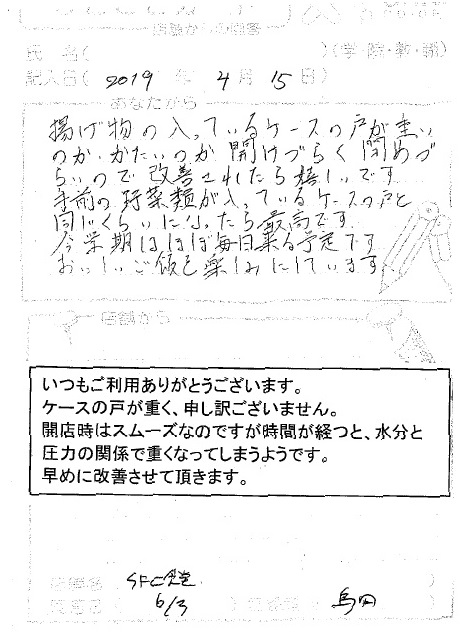 氏 名( )(学・院・教・職)
記入日( 2019 年 4 月 15 日)
あなたから
揚げ物の入っているケースの戸が重い
のか、かたいのか開けづらく閉めづ
らいので改善されたら嬉しいです。
手前の野菜類が入っているケースの戸と
同じくらいになったら最高です。
今学期はほぼ毎日来る予定です。
おいしいご飯を楽しみにしています。
店舗から
いつもご利用ありがとうございます。
ケースの戸が重く、申し訳ございません。
開店時はスムーズなのですが時間が経つと、水分と
圧力の関係で重くなってしまうようです。
早めに改善させて頂きます。
店舗名 SFC食堂
6/3